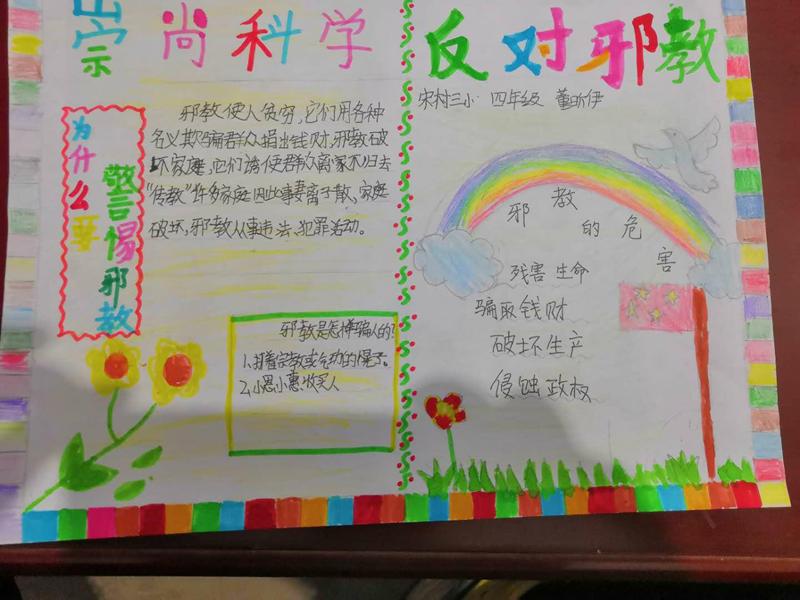 崇尚科学 反对邪教
宋村三小 四年级 董昕伊
为什么要
警惕邪教
邪教使人贫穷,它们用各种
名义欺骗群众捐出钱财,邪教破
坏家庭,它们诱使群众离家不归去
“传教”许多家庭因此事妻离子散、家庭
破坏,邪教从事违法、犯罪活动。
邪教是怎样骗人的?
1.打着宗教或气功的幌子。
2.小恩小惠收买人
邪教的危害
残害生命
骗取钱财
破坏生产
侵蚀政权